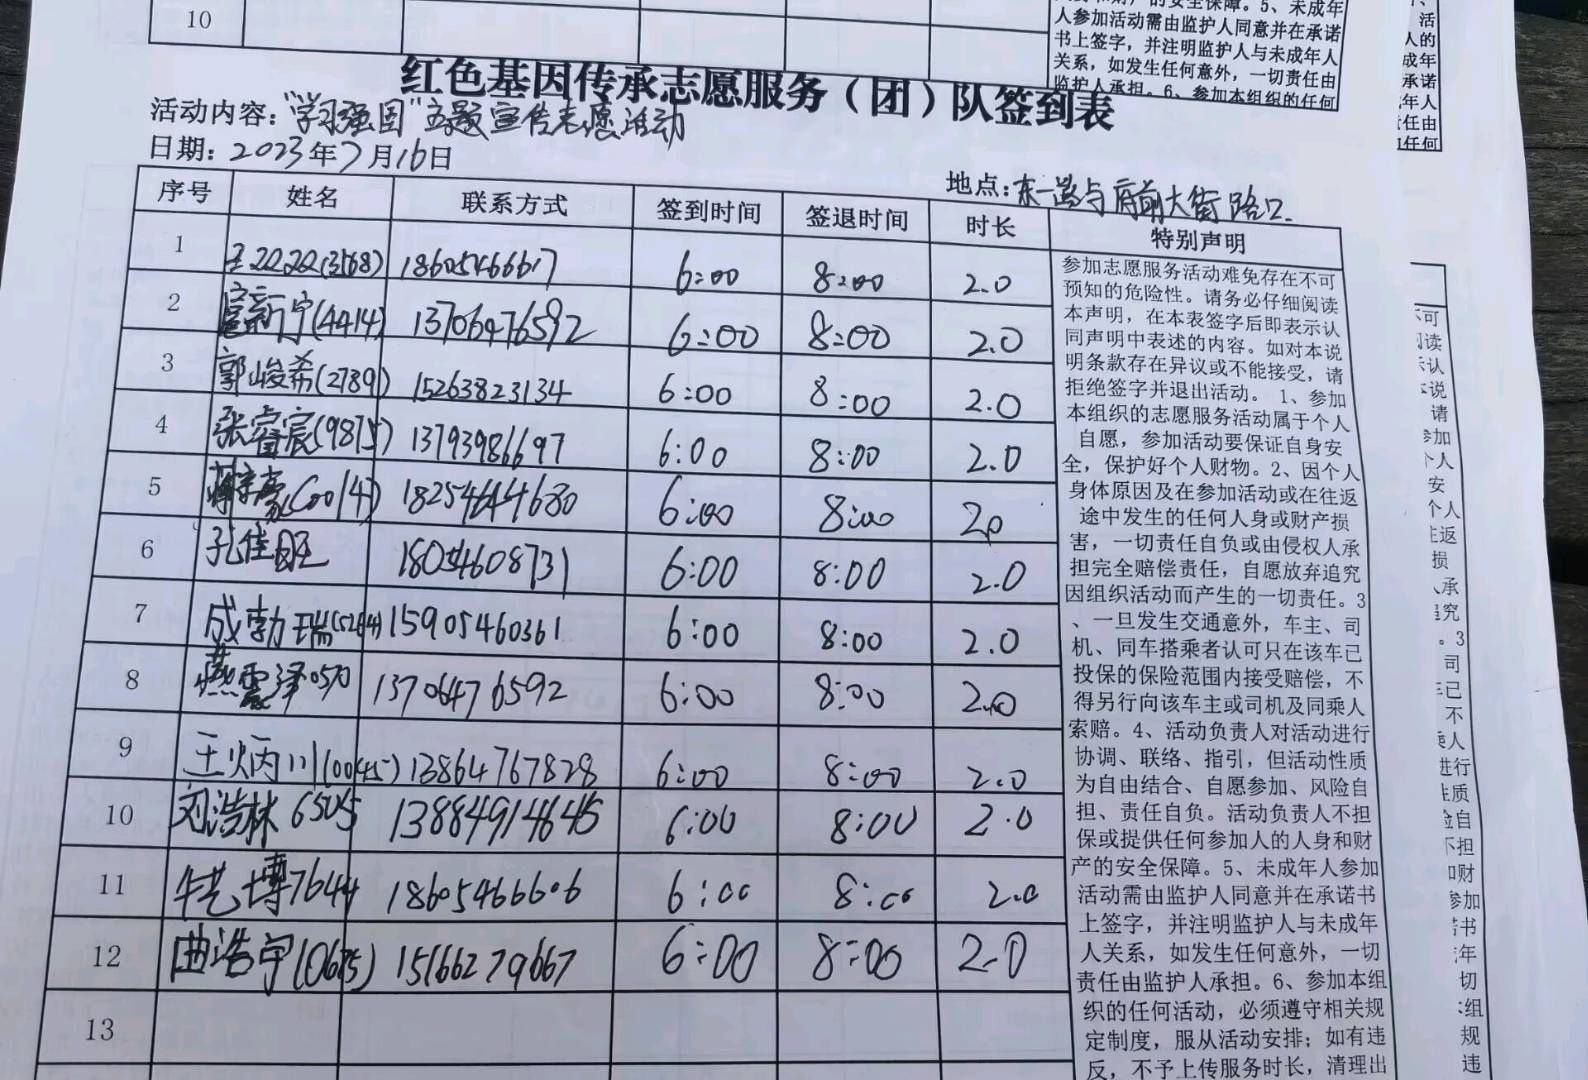 10
人参加活动需由监护人同意并在承诺
书上签字，并注明监护人与未成年人
关系，如发生任何意外，一切责任由
监护人承担。6、参加本组织的任何
红色基因传承志愿服务（团）队签到表
活动内容："学习强国"主题宣传志愿活动
日期：2023年7月16日
地点：东一路与府前大街路口.
序号 姓名 联系方式 签到时间 签退时间 时长 特别声明
1 (3168) 18605466617 6:00 8:00 2.0
2 扈新宁(4414) 13706476592 6:00 8:00 2.0
3 郭峻希(2789) 15263823134 6:00 8:00 2.0
4 张睿宸(9875) 13793986697 6:00 8:00 2.0
5 (0014) 18254644680 6:00 8:00 20
6 孔佳旺 18054608731 6:00 8:00 2.0
7 成勃瑞 15905460361 6:00 8:00 2.0
8 燕震泽0570 13706476592 6:00 8:00 2.0
9 王炳川(0045) 13864767828 6:00 8:00 2.0
10 刘浩林 6505 13884914645 6:00 8:00 2.0
11 牛艺博7644 18605466606 6:00 8:00 2.0
12 曲浩宇(0675) 15166279667 6:00 8:00 2.0
13
参加志愿服务活动难免存在不可
预知的危险性。请务必仔细阅读
本声明，在本表签字后即表示认
同声明中表述的内容。如对本说
明条款存在异议或不能接受，请
拒绝签字并退出活动。 1、参加
本组织的志愿服务活动属于个人
自愿，参加活动要保证自身安
全，保护好个人财物。2、因个人
身体原因及在参加活动或在往返
途中发生的任何人身或财产损
害，一切责任自负或由侵权人承
担完全赔偿责任，自愿放弃追究
因组织活动而产生的一切责任。3
、一旦发生交通意外，车主、司
机、同车搭乘者认可只在该车已
投保的保险范围内接受赔偿，不
得另行向该车主或司机及同乘人
索赔。4、活动负责人对活动进行
协调、联络、指引，但活动性质
为自由结合、自愿参加、风险自
担、责任自负。活动负责人不担
保或提供任何参加人的人身和财
产的安全保障。5、未成年人参加
活动需由监护人同意并在承诺书
上签字，并注明监护人与未成年
人关系，如发生任何意外，一切
责任由监护人承担。6、参加本组
织的任何活动，必须遵守相关规
定制度，服从活动安排；如有违
反，不予上传服务时长，清理出